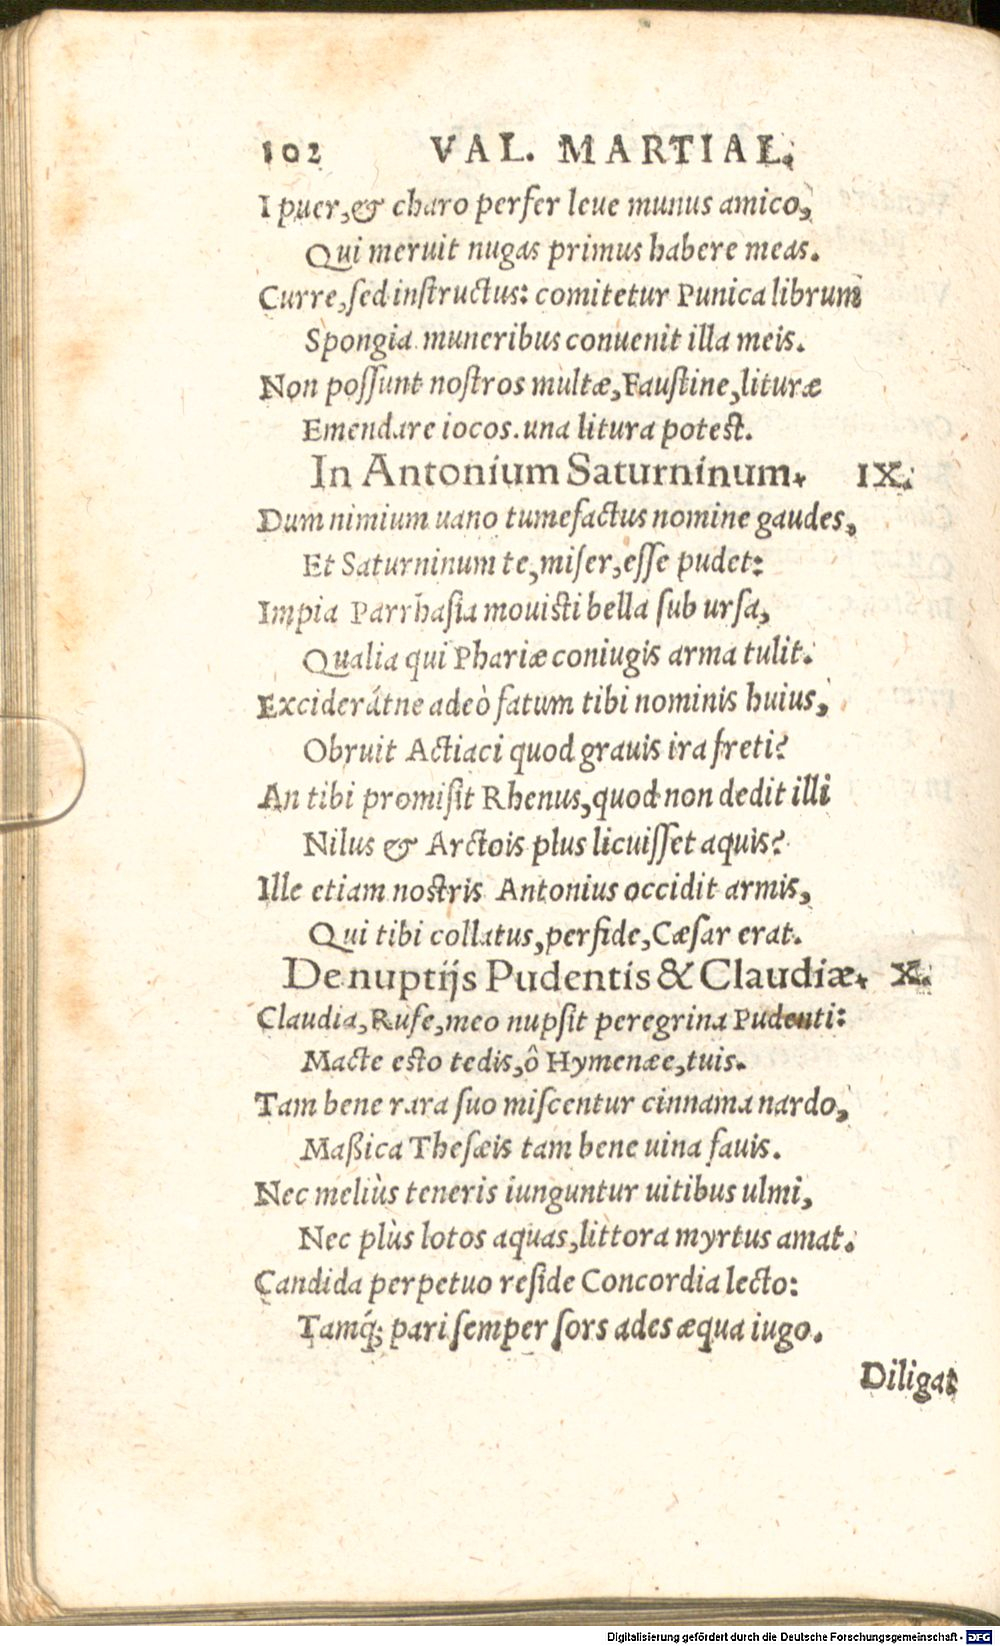 102 VAL. MARTIAL.
I puer, & charo perfer leue munus amico,
Qui meruit nugas primus habere meas.
Curre, sed instructus: comitetur Punica librum
Spongia muneribus conuenit illa meis.
Non possunt nostros multæ, Faustine, lituræ
Emendare iocos. una litura potest.
In Antonium Saturninum. IX.
Dum nimium uano tumefactus nomine gaudes,
Et Saturninum te, miser, esse pudet:
Impia Parrhasia mouisti bella sub ursa,
Qualia qui Phariæ coniugis arma tulit.
Exciderátne adeò fatum tibi nominis huius,
Obruit Actiaci quod grauis ira freti?
An tibi promisit Rhenus, quod non dedit illi
Nilus & Arctois plus licuisset aquis?
Ille etiam nostris Antonius occidit armis,
Qui tibi collatus, perfide, Cæsar erat.
De nuptijs Pudentis & Claudiæ. X.
Claudia, Rufe, meo nupsit peregrina Pudenti:
Macte esto tedis, ô Hymenæe, tuis.
Tam bene rara suo miscentur cinnama nardo,
Maßica Thesæis tam bene uina fauis.
Nec meliùs teneris iunguntur uitibus ulmi,
Nec plùs lotos aquas, littora myrtus amat.
Candida perpetuo reside Concordia lecto:
Tamq́; pari semper sors ades æqua iugo.
Diligat
Digitalisierung gefördert durch die Deutsche Forschungsgemeinschaft - DFG